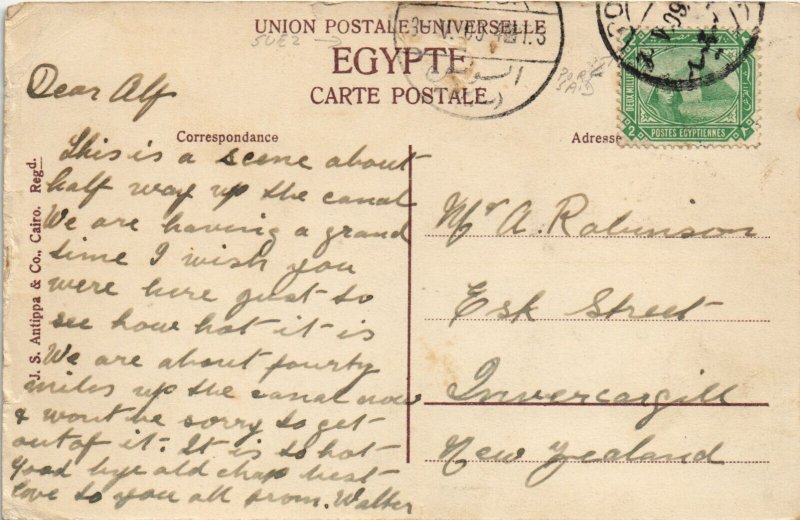 UNION POSTALE UNIVERSELLE
EGYPTE
CARTE POSTALE
SUEZ
PORT SAID
Correspondance
Adresse
Dear Alf
This is a scene about
half way up the canal
We are having a grand
time I wish you
were here just to
see how hot it is
We are about fourty
miles up the canal now
& wont be sorry to get
out of it. It is so hot
Good bye old chap best
love to you all from. Walter
Mr A. Robinson
Esk Street
Invercargill
New Zealand
J. S. Antippa & Co., Cairo. Regd.
DEUX MILL
POSTES EGYPTIENNES
2
٢
السويس